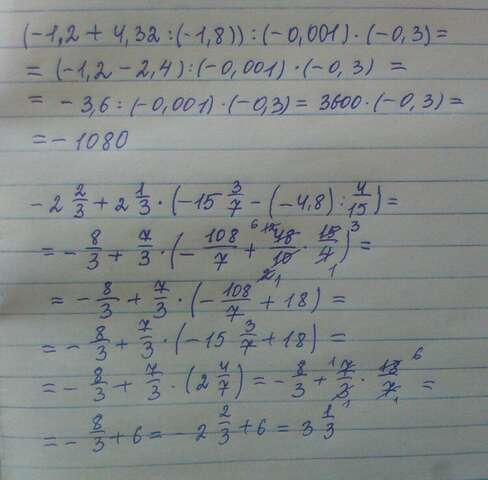 (-1,2 + 4,32 : (-1,8)) : (-0,001) · (-0,3) =
= (-1,2 - 2,4) : (-0,001) · (-0,3) =
= -3,6 : (-0,001) · (-0,3) = 3600 · (-0,3) =
= -1080
-2 2/3 + 2 1/3 · (-15 3/7 - (-4,8) : 4/15) =
= -8/3 + 7/3 · (-108/7 + 48/10 · 15/4) =
= -8/3 + 7/3 · (-108/7 + 18) =
= -8/3 + 7/3 · (-15 3/7 + 18) =
= -8/3 + 7/3 · (2 4/7) = -8/3 + 7/3 · 18/7 =
= -8/3 + 6 = -2 2/3 + 6 = 3 1/3